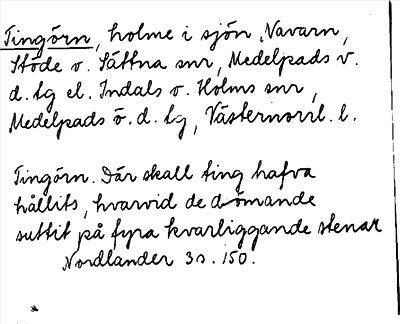 Tingörn, holme i sjön Navarn,
Stöde o. Sättna snr, Medelpads v.
d. tg el. Indals o. Holms snr,
Medelpads ö. d. tg, Västernorrl. l.
Tingörn. Där skall ting hafva
hållits, hvarvid de dömande
suttit på fyra kvarliggande stenar
Nordlander 3s. 150.